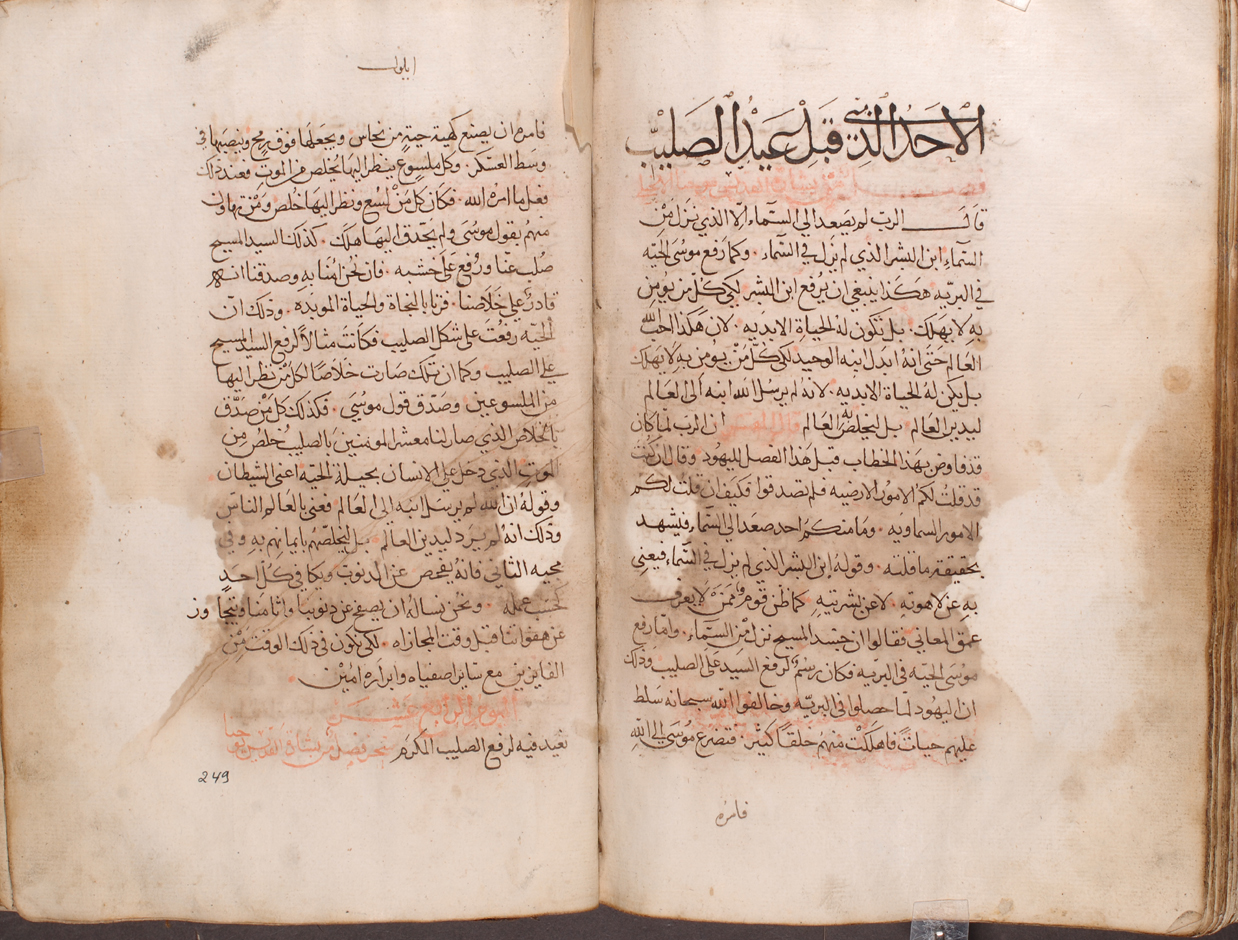 الاحد الذي قبل عيد الصليب
فصل من بشارة القديس يوحنا الانجيلي
قال الرب لم يصعد الي السماء الا الذي نزل من
السماء ابن البشر الذي لم يزل في السماء . وكما رفع موسى الحيه
في البريه هكذا ينبغي ان يرفع ابن البشر لكي كل من يومن
به لا يهلك . بل تكون له الحياة الابديه . لان هكذا احب الله
العالم حتى انه ابدل ابنه الوحيد لكي كل من يومن به لا يهلك
بل يكن له الحياة الابديه . لانه لم يرسل الله ابنه الى العالم
ليدين العالم . بل ليخلص به العالم قال المفسر ان الرب لما كان
قد فاوض بهذا الخطاب قبل هذا الفصل لليهود . وقال ان كنت
قد قلت لكم الامور الارضيه فلم تصدقوا فكيف ان قلت لكم
الامور السماويه . وما منكم احد صعد الى السماء فيشهد
بحقيقة ما قلته . وقوله ابن البشر الذي لم يزل في السماء فيعني
به عن لاهوته . لا عن بشريته . كما ظن قوم ممن لا يعرف
عمق المعاني فقالوا ان جسد المسيح نزل من السماء . واما رفع
موسى الحيه في البريه فكان رسم لرفع السيد على الصليب وذلك
ان اليهود لما حصلوا في البريه وخالفوا الله سبحانه سلط
عليهم حيات فاهلكت منهم خلقا كثير . فتضرع موسى الى الله
فامره
ايلول
فامره ان يصنع كهية حية من نحاس ويجعلها فوق رمح وينصبها في
وسط العسكر . وكل ملسوع ينظر اليها يخلص من الموت فعند ذلك
فعل ما امره الله . فكان كل من لسع ونظر اليها خلص ومن تهاون
منهم بقول موسى ولم يحدق اليها هلك . كذلك السيد المسيح
صلب عنا ورفع على خشبه . فان نحن امنا به وصدقنا انه
قادر على خلاصنا . فزنا بالنجاة والحياة الموبده . وذلك ان
الحيه رفعت على شكل الصليب فكانت مثالا لرفع السيد المسيح
على الصليب وكما ان تلك صارت خلاصا لكل من نظر اليها
من الملسوعين . وصدق قول موسى . فكذلك كل من صدق
بالخلاص الذي صار لنا معشر المومنين بالصليب خلص من
الموت الذي دخل على الانسان بحيلة الحيه اعني الشيطان .
وقوله ان الله لم يرسل ابنه الى العالم فعني بالعالم الناس
وذلك انه لم يرد ليدين العالم . بل ليخلصهم بايمانهم به وفي
مجيه الثاني فانه يفحص عن الدنوب ويكافي كل احد
كحسب عمله . ونحن نساله ان يصفح عن دنوبنا واثامنا ويتجاوز
عن هفواتنا قبل وقت المجازاه . لكي نكون في ذلك الوقت من
الفايزين مع ساير اصفياه وابراره امين .
اليوم الرابع عشر
نعيد فيه لرفع الصليب الكريم سحر فصل من بشارة القديس يوحنا
249